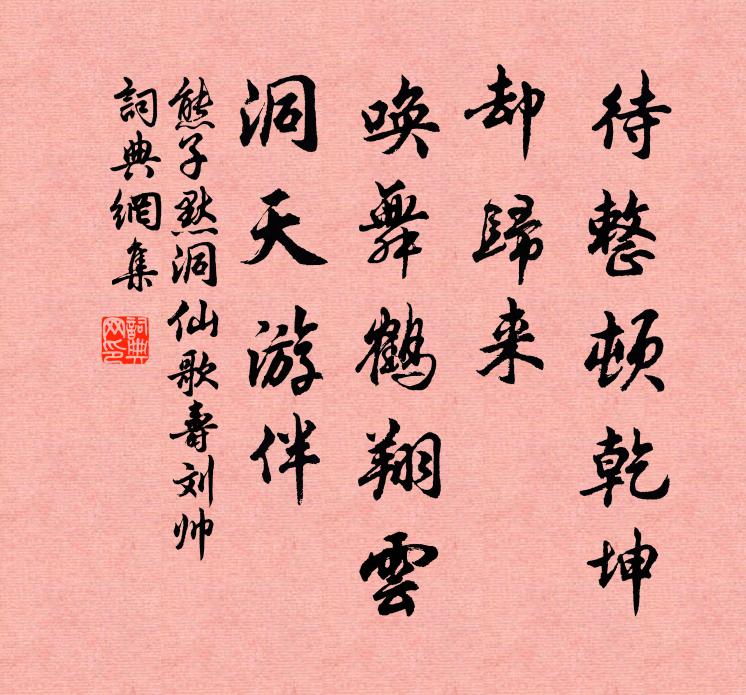 待整頓乾坤
却歸来
唤舞鶴翔雲
洞天游伴
熊子默洞仙歌壽刘帅
詞典網集
詞典网印